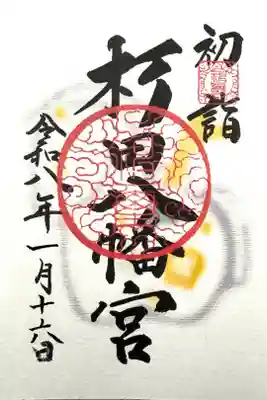 初詣
杉田八幡宮
令和八年一月十六日